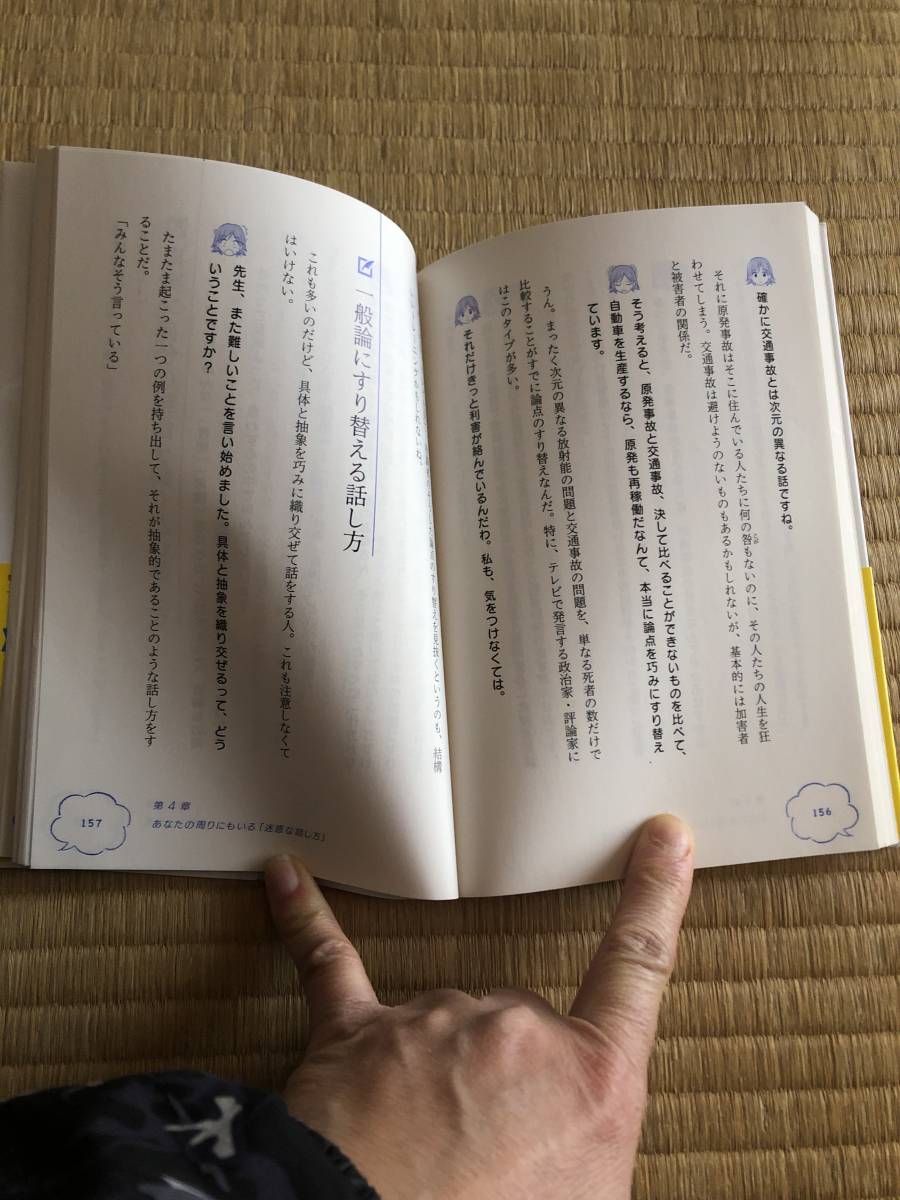 確かに交通事故とは次元の異なる話ですね。
それに原発事故はそこに住んでいる人たちに何の咎もないのに、その人たちの人生を狂
わせてしまう。交通事故は避けようのないものもあるかもしれないが、基本的には加害者
と被害者の関係だ。
そう考えると、原発事故と交通事故、決して比べることができないものを比べて、
自動車を生産するなら、原発も再稼働だなんて、本当に論点を巧みにすり替え
ています。
うん。まったく次元の異なる放射能の問題と交通事故の問題を、単なる死者の数だけで
比較することがすでに論点のすり替えなんだ。特に、テレビで発言する政治家・評論家に
はこのタイプが多い。
それだけきっと利害が絡んでいるんだわ。私も、気をつけなくては。
156
のすり替えを見抜くというのも、結構
一般論にすり替える話し方
これも多いのだけど、具体と抽象を巧みに織り交ぜて話をする人。これも注意しなくて
はいけない。
先生、また難しいことを言い始めました。具体と抽象を織り交ぜるって、どう
いうことですか？
たまたま起こった一つの例を持ち出して、それが抽象的であることのような話し方をす
ることだ。
「みんなそう言っている」
第4章
あなたの周りにもいる「迷惑な話し方」
157